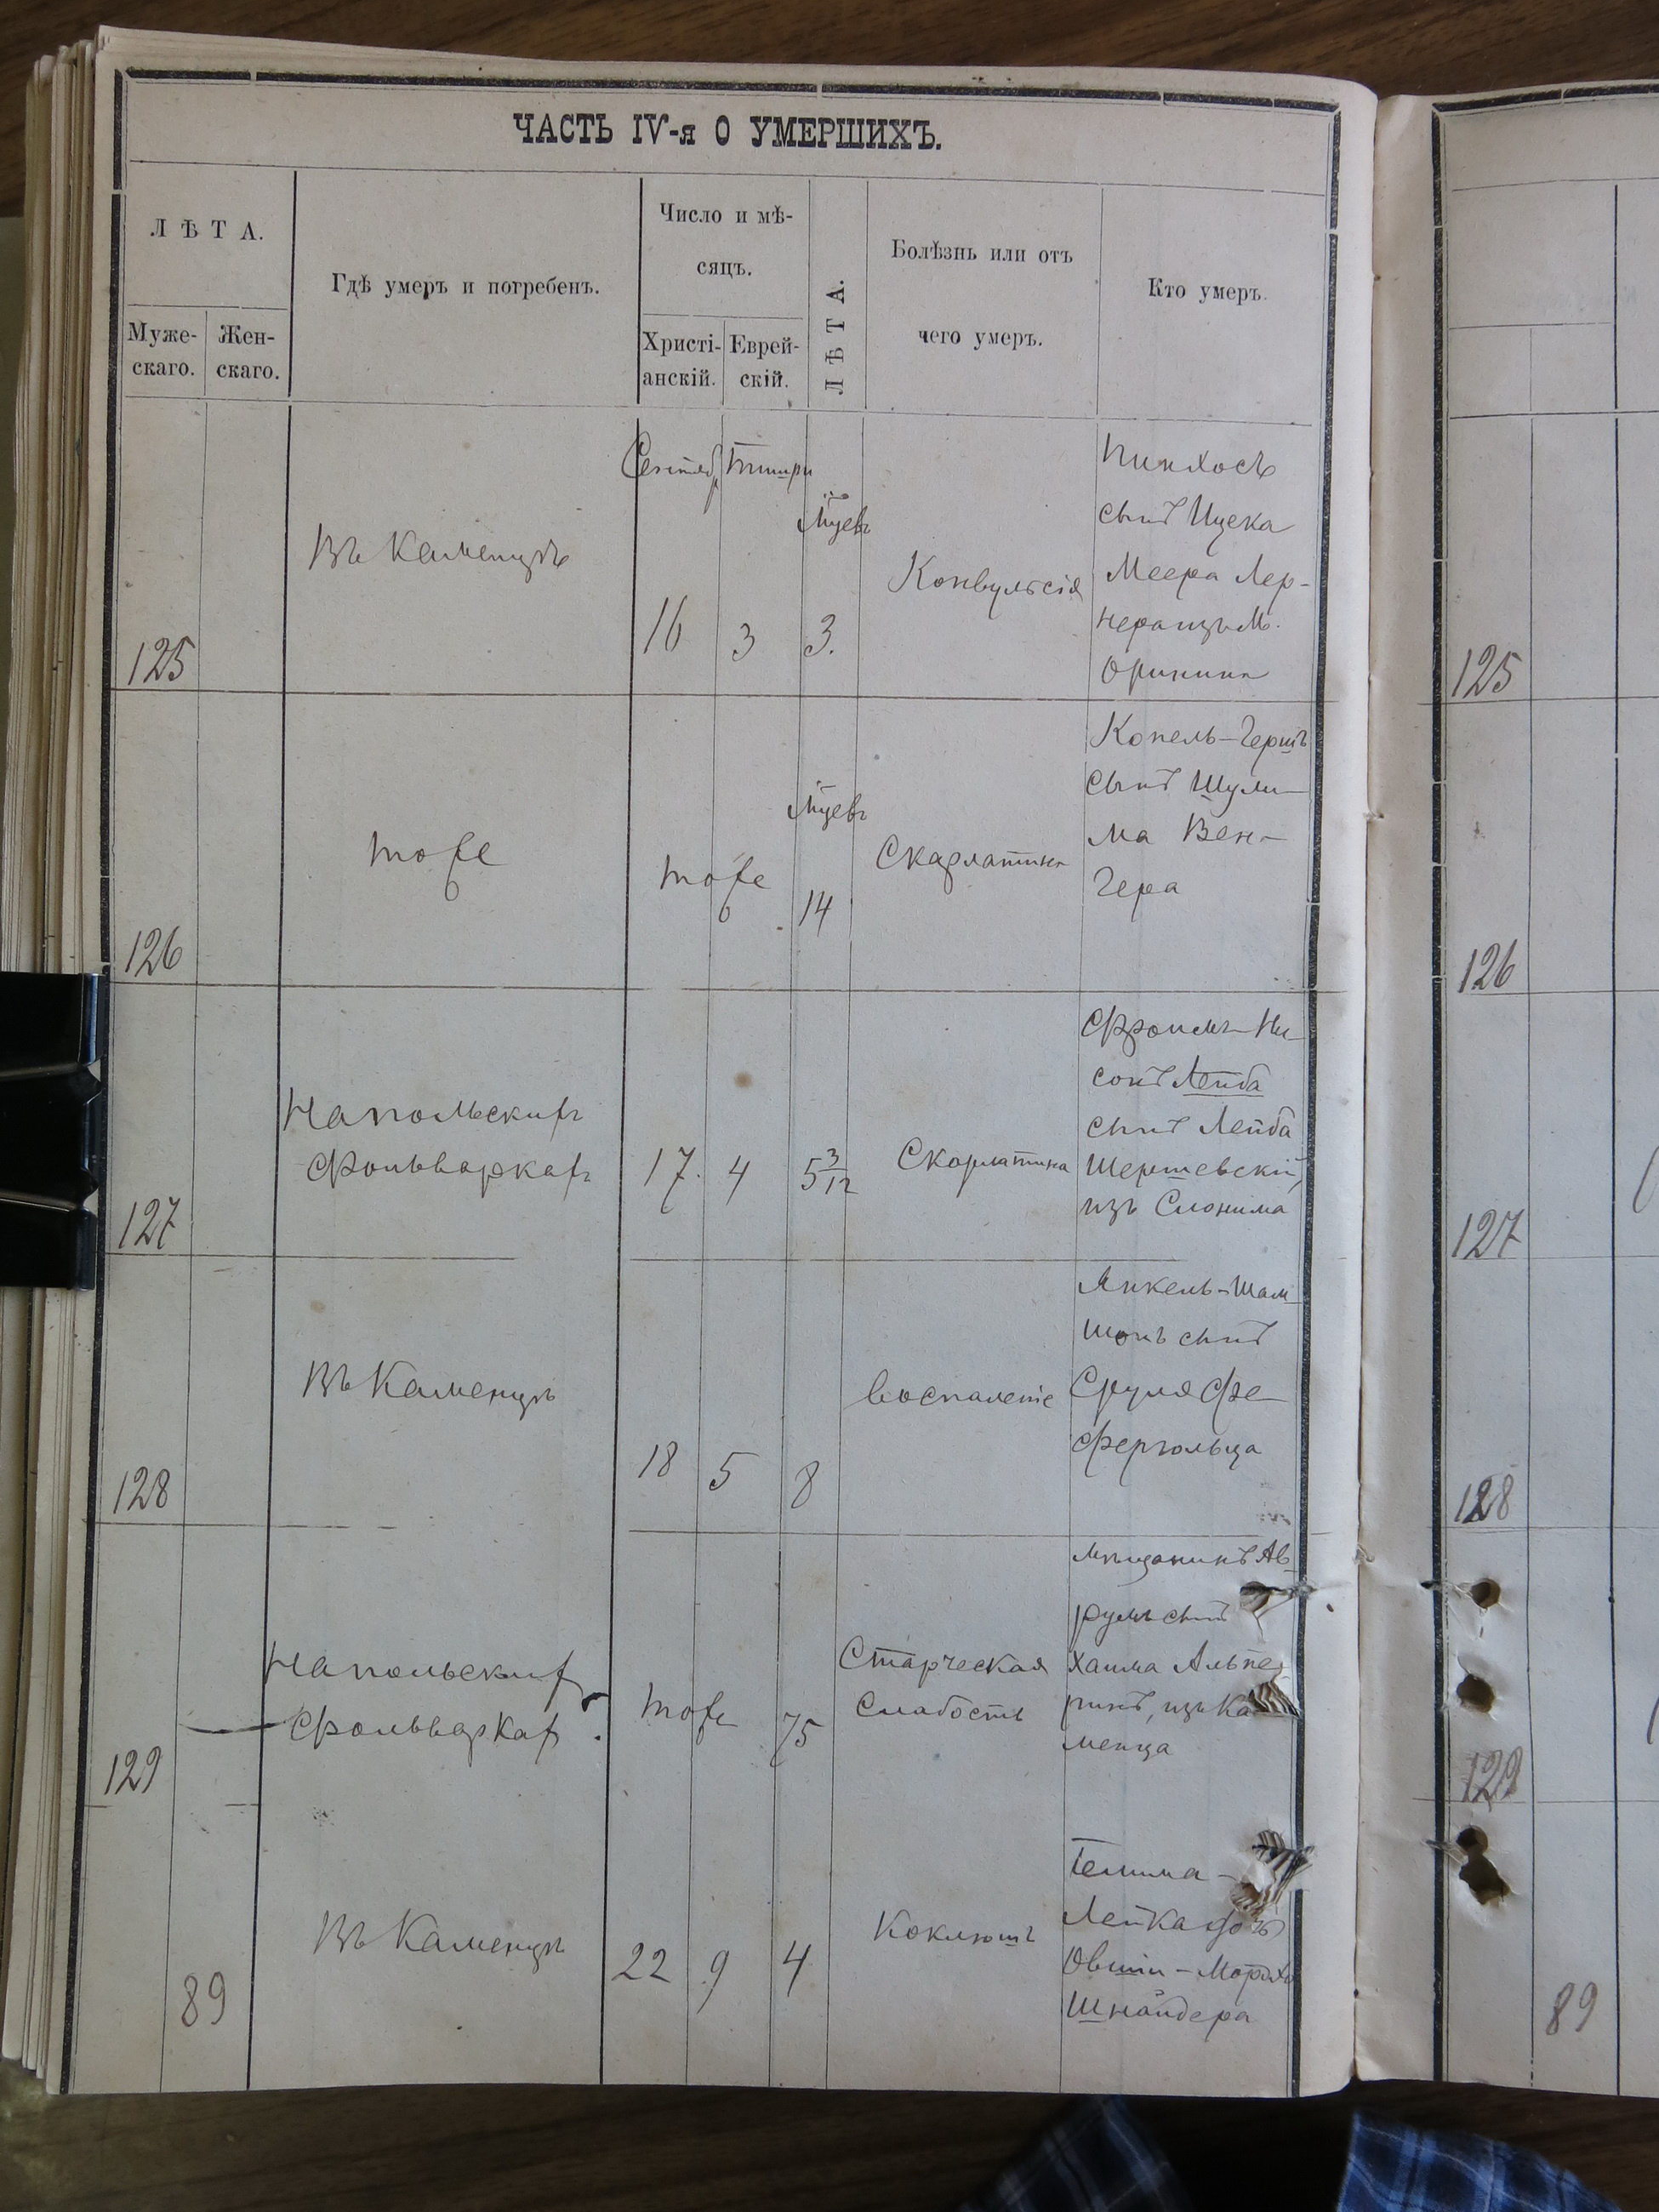 ЧАСТЬ IV-я О УМЕРШИХЪ.
ЛѢТА.
Муже-
скаго.
Жен-
скаго.
Гдѣ умеръ и погребенъ.
Число и мѣ-
сяцъ.
Христі-
анскій.
Еврей-
скій.
ЛѢТА.
Болѣзнь или отъ
чего умеръ.
Кто умеръ.
125
Въ Каменцѣ
Сентябр
16
Тишри
3
Мѣсев
3.
Конвульсія
Пинхосъ
сынъ Ицека
Меера Лер-
нера изъ М.
Оринина
125
126
тоже
тоже
Мѣсев
14
Скарлатина
Копель-Гершъ
сынъ Шули-
ма Вен-
гера
126
127
На польскихъ
фольваркахъ
17.
4
5 3/12
Скорлатина
Фроимъ-Ни-
сонъ Лейба
сынъ Лейба
Шершевскій,
изъ Слонима
127
128
Въ Каменцѣ
18
5
8
воспаленіе
Янкель-Шам-
шонъ сынъ
Сруля Фе-
фергольца
128
129
На польских
фольварках.
тоже
75
Старческая
слабость
мѣщанинъ Ав-
румъ сынъ
Хаима Альпе-
ринъ, изъ Ка
менца
129
89
Въ Каменцѣ
22
9
4
Коклюшъ
Лейка дочь
Овшии-Мордхо
Шнайдера
89